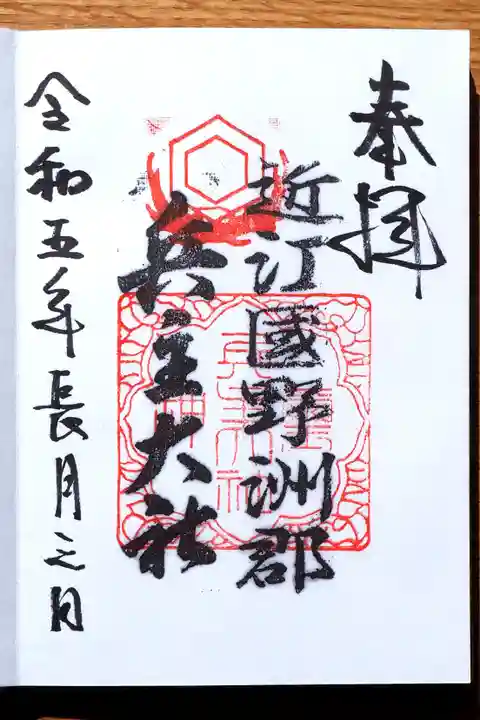 奉拝
近江國野洲郡
兵主大社
令和五年長月三日